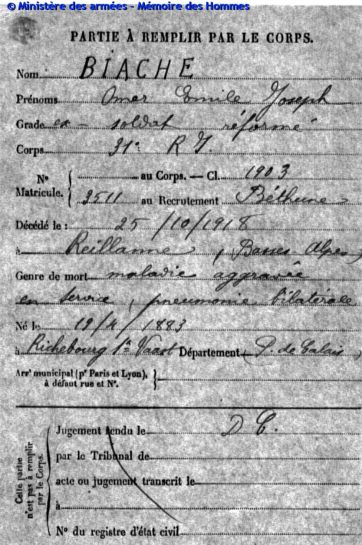 © Ministère des armées - Mémoire des Hommes
PARTIE À REMPLIR PAR LE CORPS.
Nom BIACHE
Prénoms Omer Emile Joseph
Grade ex - soldat réformé
Corps 31e R I
N° au Corps. — Cl. 1903
Matricule. 3511 au Recrutement Béthune
Décédé le : 25/10/1918
à Reillanne, (Basses Alpes)
Genre de mort maladie aggravée
en service, pneumonie bilatérale
Né le 19/4/1883
à Richebourg St Vaast Département P. de Calais
Arrt municipal (pr Paris et Lyon),
à défaut rue et N°.
Cette partie
n'est pas à remplir
par le Corps.
Jugement rendu le D C.
par le Tribunal de
acte ou jugement transcrit le
à
N° du registre d'état civil